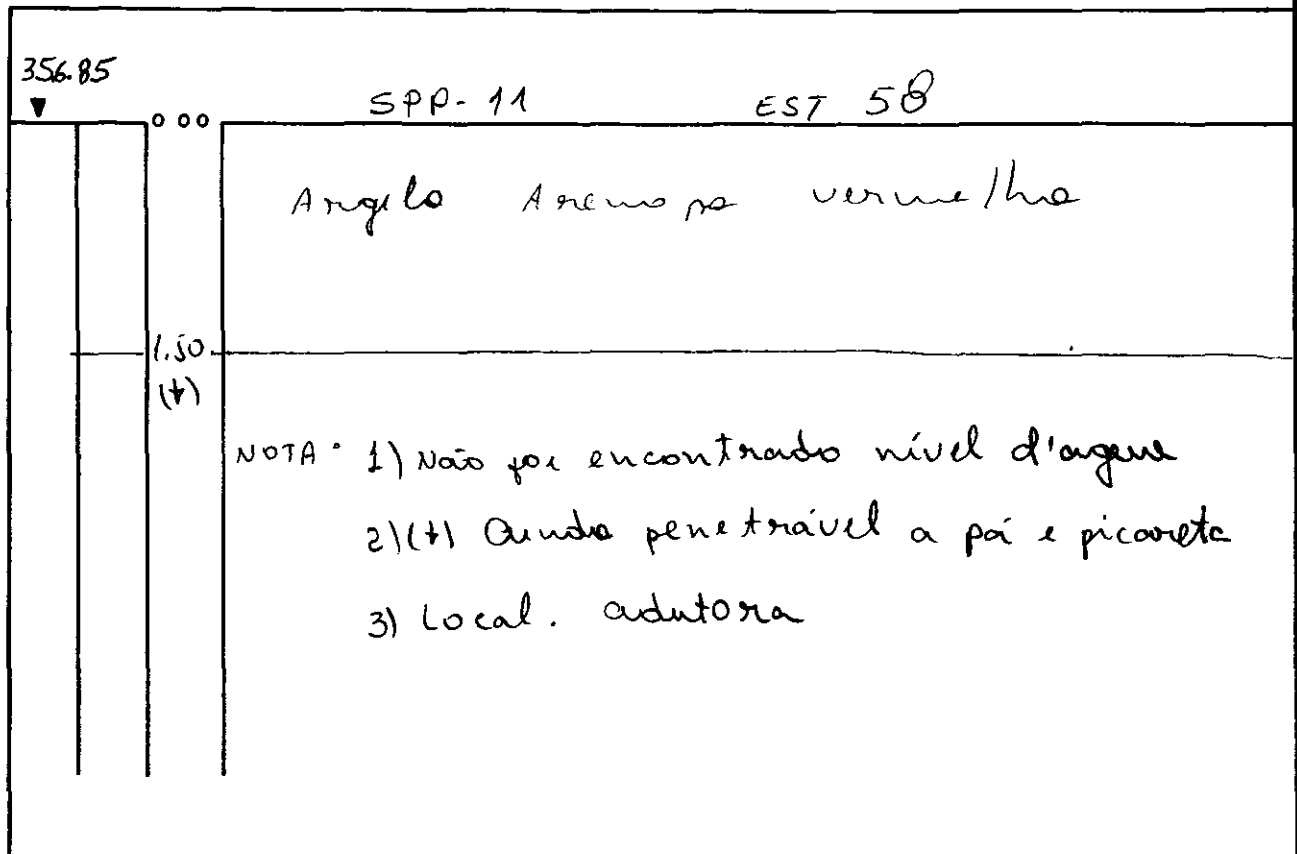 356.85
SPP-11 EST 58
0 00
Argila Arenosa vermelha
1.50
(+)
NOTA: 1) Não foi encontrado nível d'água
2) (+) Ainda penetrável a pá e picareta
3) Local. adutora